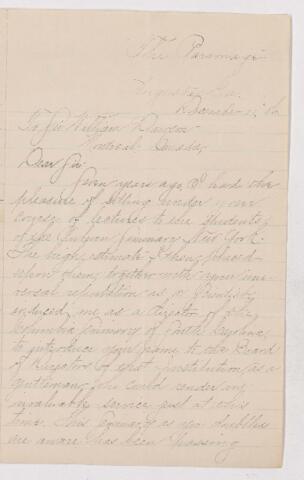 The Parsonage
Augusta, Ga.
December
To Sir William Dawson
Montreal Canada,
Dear Sir
Seven years ago, I had the
pleasure of sitting under your
course of lectures to the students
of the Union Seminary New York.
The high estimate I then placed
upon them, together with your uni-
versal reputation as a Scientist
induced me as a Director of the
Columbia Seminary of South Carolina,
to introduce your name to the Board
of Directors of that institution as a
gentleman who could render
invaluable service just at this
time. This Seminary as you doubtless
are aware has been passing